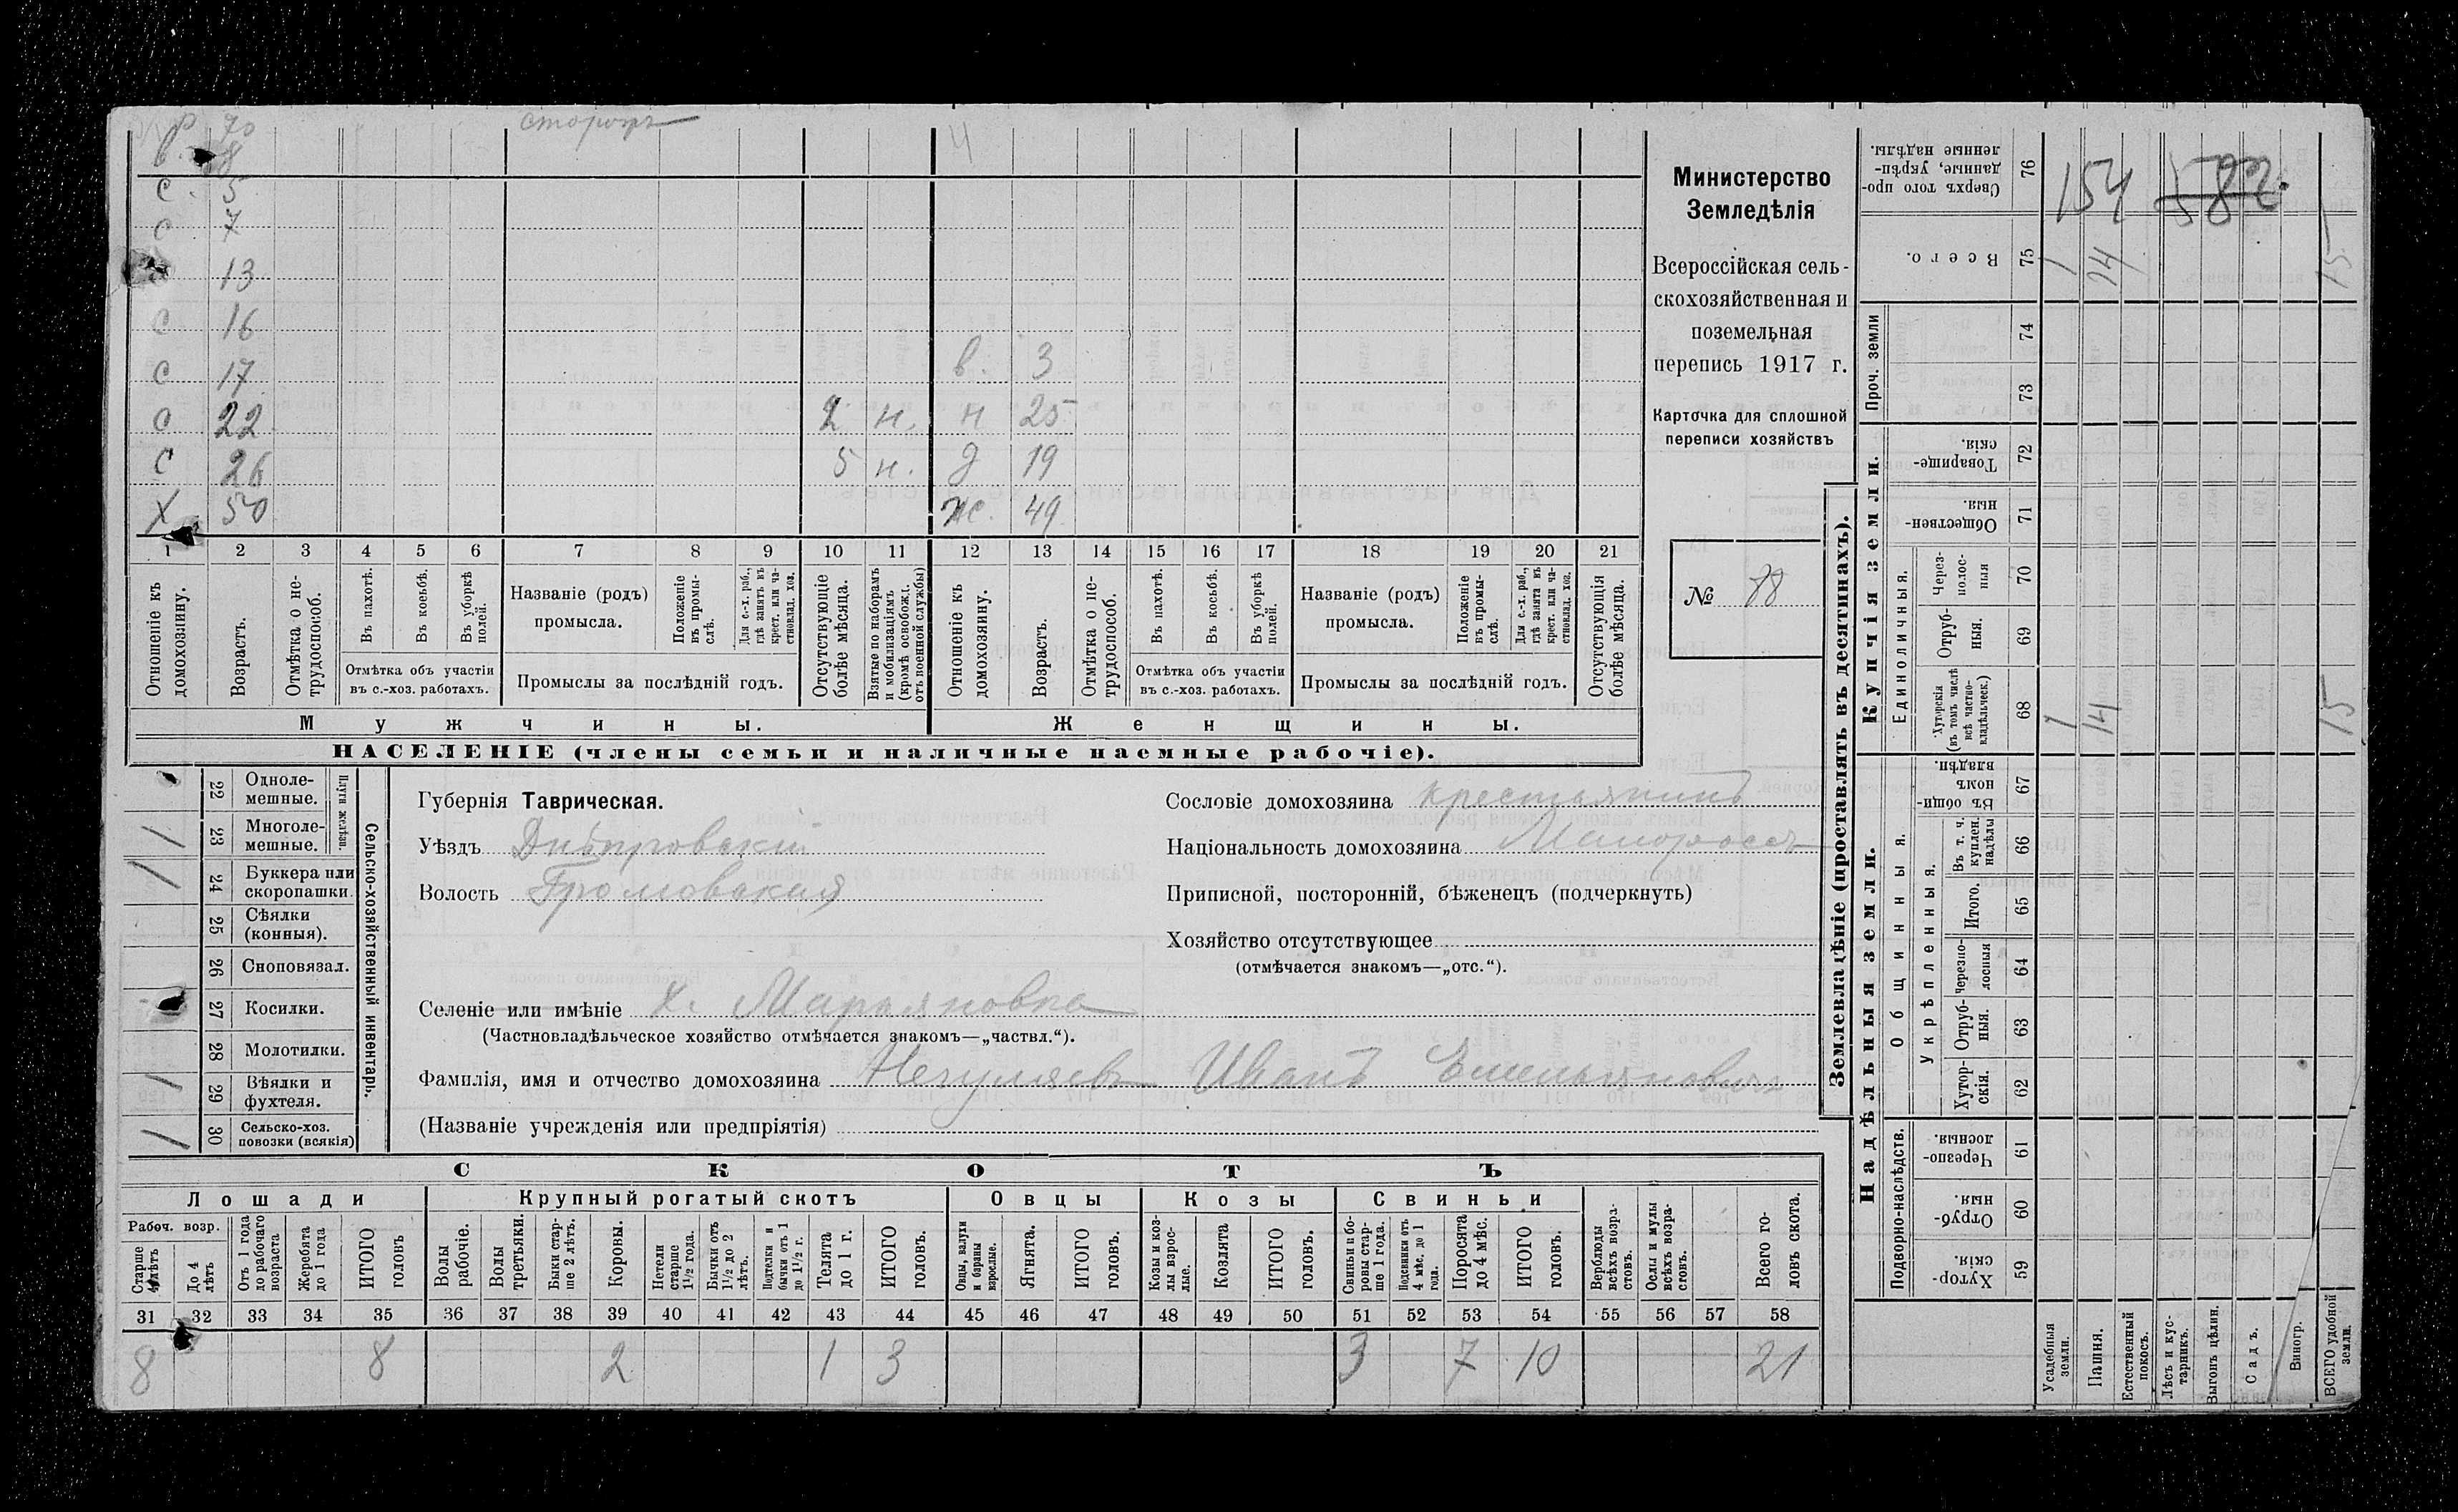 р 70 сторожъ
в. 8 4
с 5
с 7
13
с 16
с 17 в. 3
с 22 2 н. н 25
с 26 5 н. д 19
х 50 ж. 49
1 2 3 4 5 6 7 8 9 10 11 12 13 14 15 16 17 18 19 20 21
Отношеніе къ домохозяину.
Возрастъ.
Отмѣтка о не-трудоспособ.
Въ пахотѣ.
Въ косьбѣ.
Въ уборкѣ полей.
Отмѣтка объ участіи въ с.-хоз. работахъ.
Названіе (родъ) промысла.
Положеніе въ промы-слѣ.
Для с.-х. раб., гдѣ занятъ въ крест. или ча-стновлад. хоз.
Промыслы за послѣдній годъ.
Отсутствующіе болѣе мѣсяца.
Взятые по наборамъ и мобилизаціямъ (кромѣ освобожд. отъ военной службы)
Отношеніе къ домохозяину.
Возрастъ.
Отмѣтка о не-трудоспособ.
Въ пахотѣ.
Въ косьбѣ.
Въ уборкѣ полей.
Отмѣтка объ участіи въ с.-хоз. работахъ.
Названіе (родъ) промысла.
Положеніе въ промы-слѣ.
Для с.-х. раб., гдѣ занята въ крест. или ча-стновлад. хоз.
Промыслы за послѣдній годъ.
Отсутствующія болѣе мѣсяца.
Мужчины.
Женщины.
НАСЕЛЕНІЕ (члены семьи и наличные наемные рабочіе).
Министерство
Земледѣлія
Всероссійская сель-
скохозяйственная и
поземельная
перепись 1917 г.
Карточка для сплошной
переписи хозяйствъ
№ 88
22 Одноле-мешные.
23 Многоле-мешные. 1
Плуги желѣзн.
24 Буккера или скоропашки. 1
25 Сѣялки (конныя).
26 Сноповязал.
27 Косилки.
28 Молотилки.
29 Вѣялки и фухтеля. 1
30 Сельско-хоз. повозки (всякія) 1
Сельско-хозяйственный инвентарь.
Губернія Таврическая.
Уѣздъ Днѣпровскій
Волость Громовская
Селеніе или имѣніе х. Марьяновка
(Частновладѣльческое хозяйство отмѣчается знакомъ—„частвл.“).
Сословіе домохозяина крестьянинъ
Національность домохозяина Малороссъ
Приписной, посторонній, бѣженецъ (подчеркнуть)
Хозяйство отсутствующее
(отмѣчается знакомъ—„отс.“).
Фамилія, имя и отчество домохозяина Негуляевъ Иванъ Емельяновичъ
(Названіе учрежденія или предпріятія)
СКОТЪ
Лошади Крупный рогатый скотъ Овцы Козы Свиньи
Рабоч. возр.
Старше 4 лѣтъ
До 4 лѣтъ
Отъ 1 года до рабочаго возраста
Жеребята до 1 года
ИТОГО головъ
Волы рабочіе.
Волы третьяки.
Быки стар-ше 2 лѣтъ.
Коровы.
Нетели старше 1½ года.
Бычки отъ 1½ до 2 лѣтъ.
Подтелки и бычки отъ 1 до 1½ г.
Телята до 1 г.
ИТОГО головъ.
Овцы, валухи и бараны взрослые.
Ягнята.
ИТОГО головъ.
Козы и коз-лы взрос-лые.
Козлята
ИТОГО головъ.
Свиньи и бо-ровы стар-ше 1 года.
Подсвинки отъ 4 мѣс. до 1 года.
Поросята до 4 мѣс.
ИТОГО головъ.
Верблюды всѣхъ возра-стовъ.
Ослы и мулы всѣхъ возра-стовъ.
Всего го-ловъ скота.
31 32 33 34 35 36 37 38 39 40 41 42 43 44 45 46 47 48 49 50 51 52 53 54 55 56 57 58
8 8 2 1 3 3 7 10 21
Землевладѣніе (проставлять въ десятинахъ).
Купчія земли.
Надѣльныя земли.
76 Сверхъ того про-данные, укрѣп-ленные надѣлы. 154 582.
75 Всего. 1 14 15
Проч. земли
74
73
72 Товарище-скія.
71 Обществен-ныя.
Единоличныя.
70 Через-полос-ныя
69 Отруб-ныя.
68 Хуторскія (въ томъ числѣ всѣ частно-владѣльческ.) 1 14 15
67 Въ общи-номъ владѣн.
Общинныя.
Укрѣпленныя.
66 Въ т. ч. куплен. надѣлы
65 Итого.
64 Черезпо-лосныя
63 Отруб-ныя.
62 Хутор-скія.
Подворно-наслѣдств.
61 Черезпо-лосныя.
60 Отруб-ныя.
59 Хутор-скія
Усадебныя земли.
Пашня.
Естественный покосъ.
Лѣсъ и кус-тарникъ.
Выгонъ цѣлин.
Садъ.
Виногр.
ВСЕГО удобной земли.